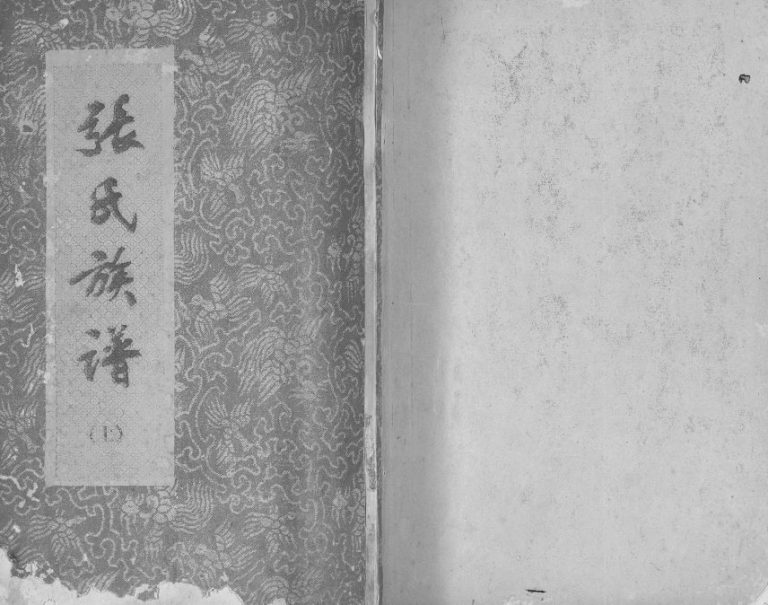 张氏族谱
(上)